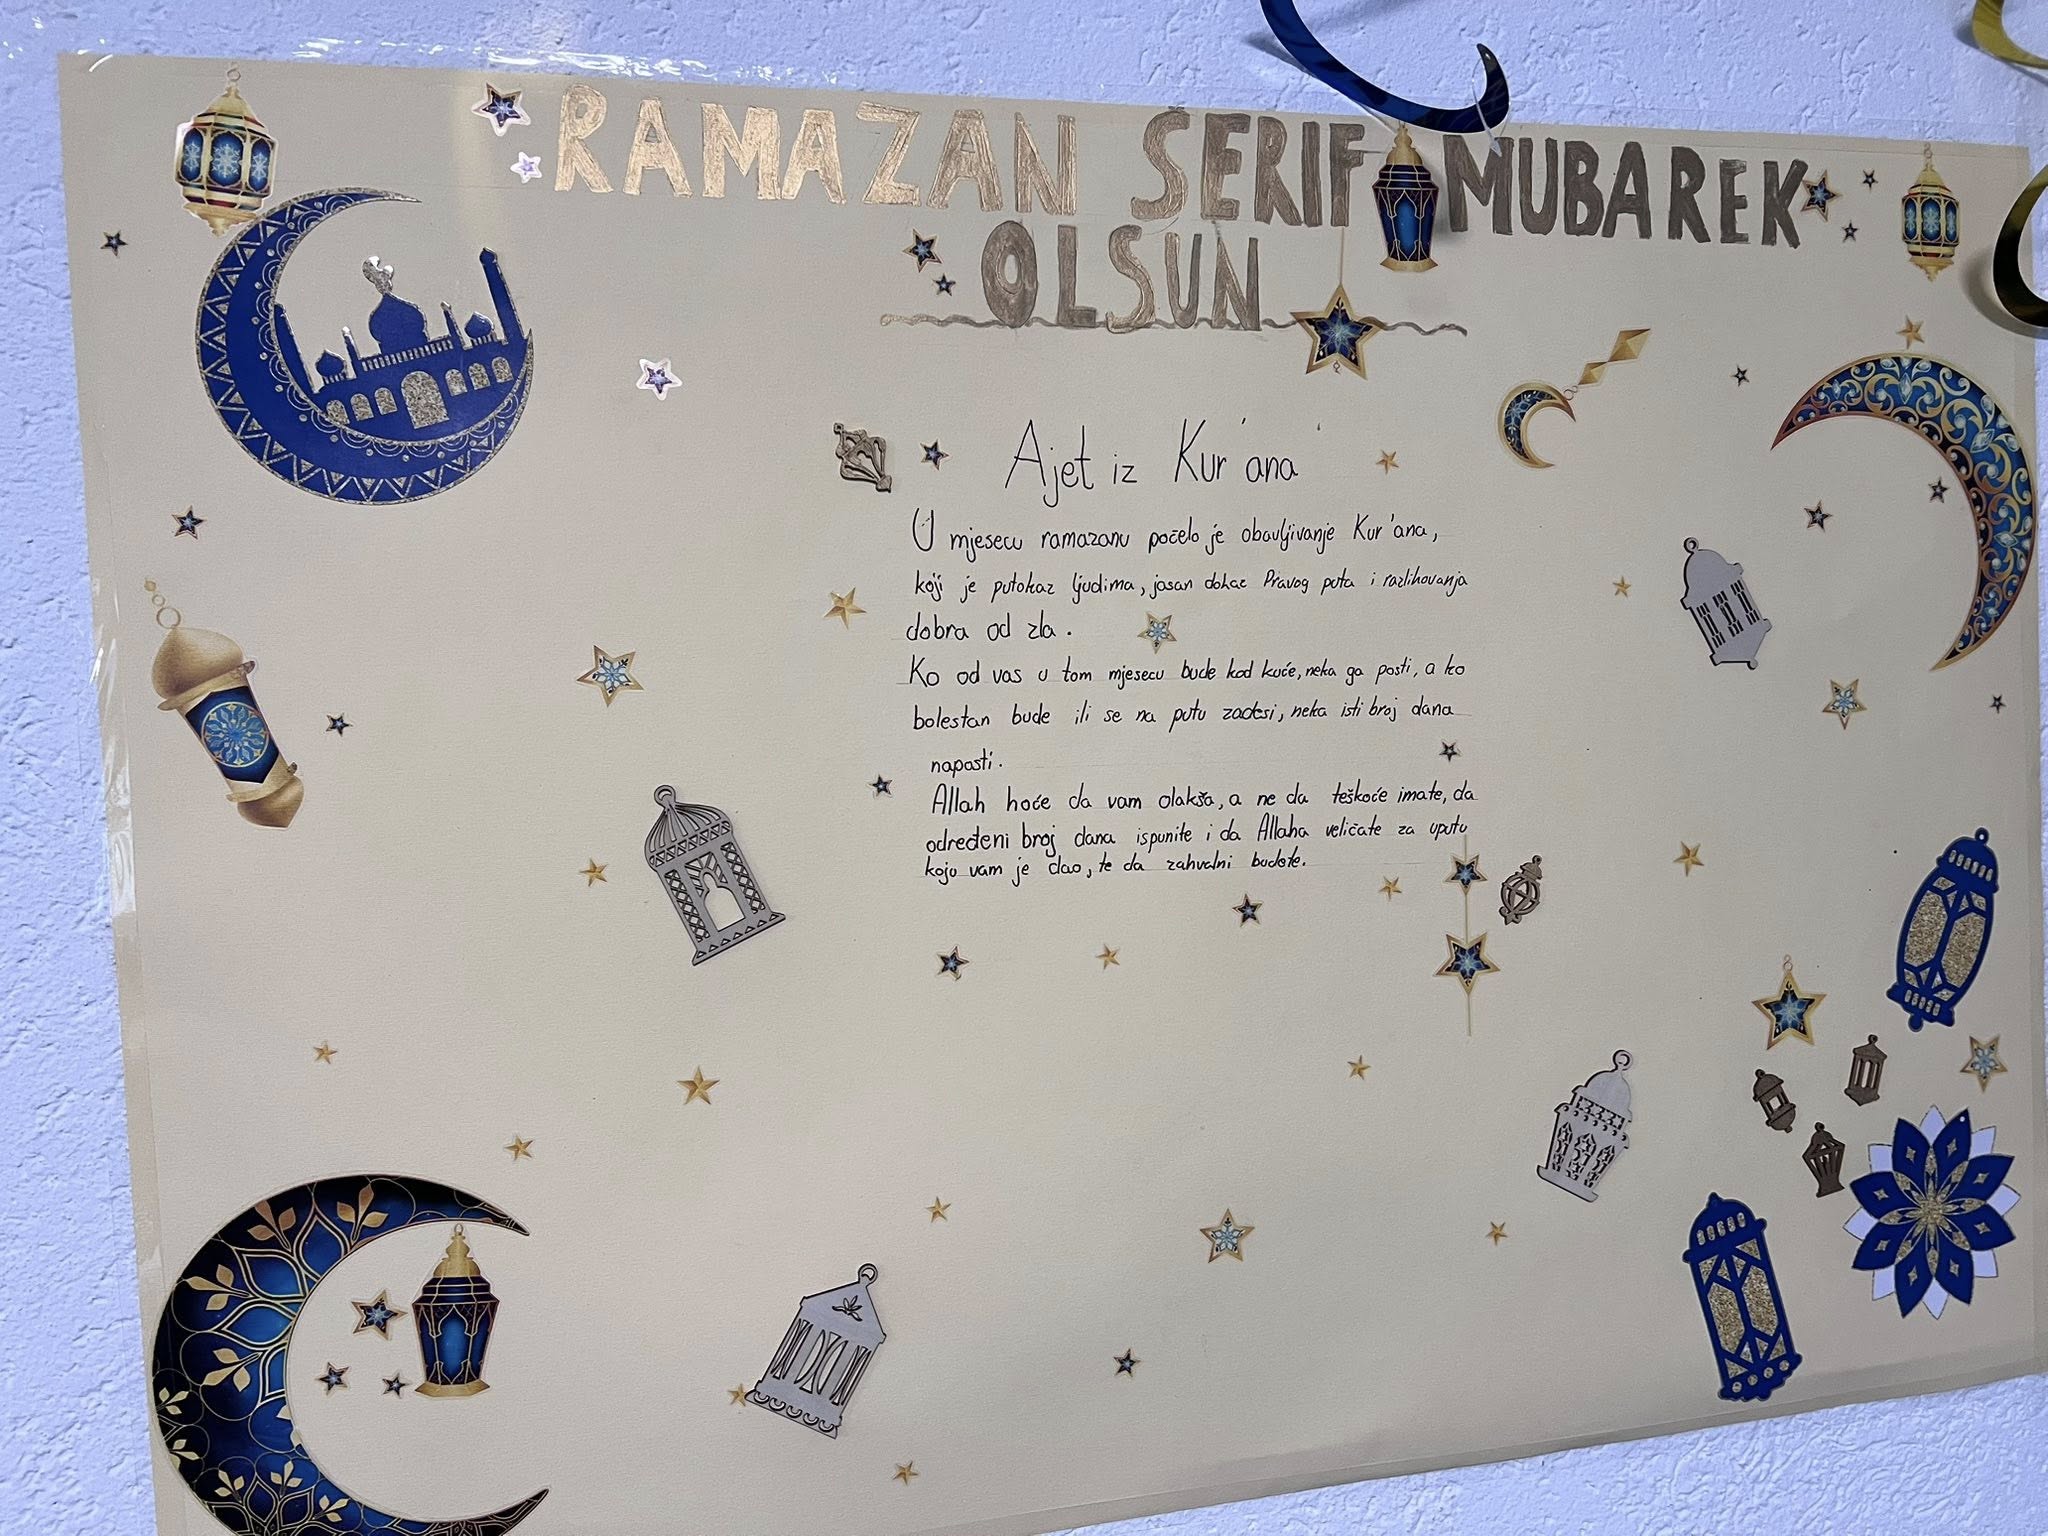 RAMAZAN SERIF MUBAREK
OLSUN
Ajet iz Kur'ana
U mjesecu ramazanu počelo je obavljivanje Kur'ana,
koji je putokaz ljudima, jasan dokaz Pravog puta i razlikovanja
dobra od zla.
Ko od vas u tom mjesecu bude kod kuće, neka ga posti, a ko
bolestan bude ili se na putu zadesi, neka isti broj dana
naposti.
Allah hoće da vam olakša, a ne da teškoće imate, da
određeni broj dana ispunite i da Allaha veličate za uputu
koju vam je dao, te da zahvalni budete.